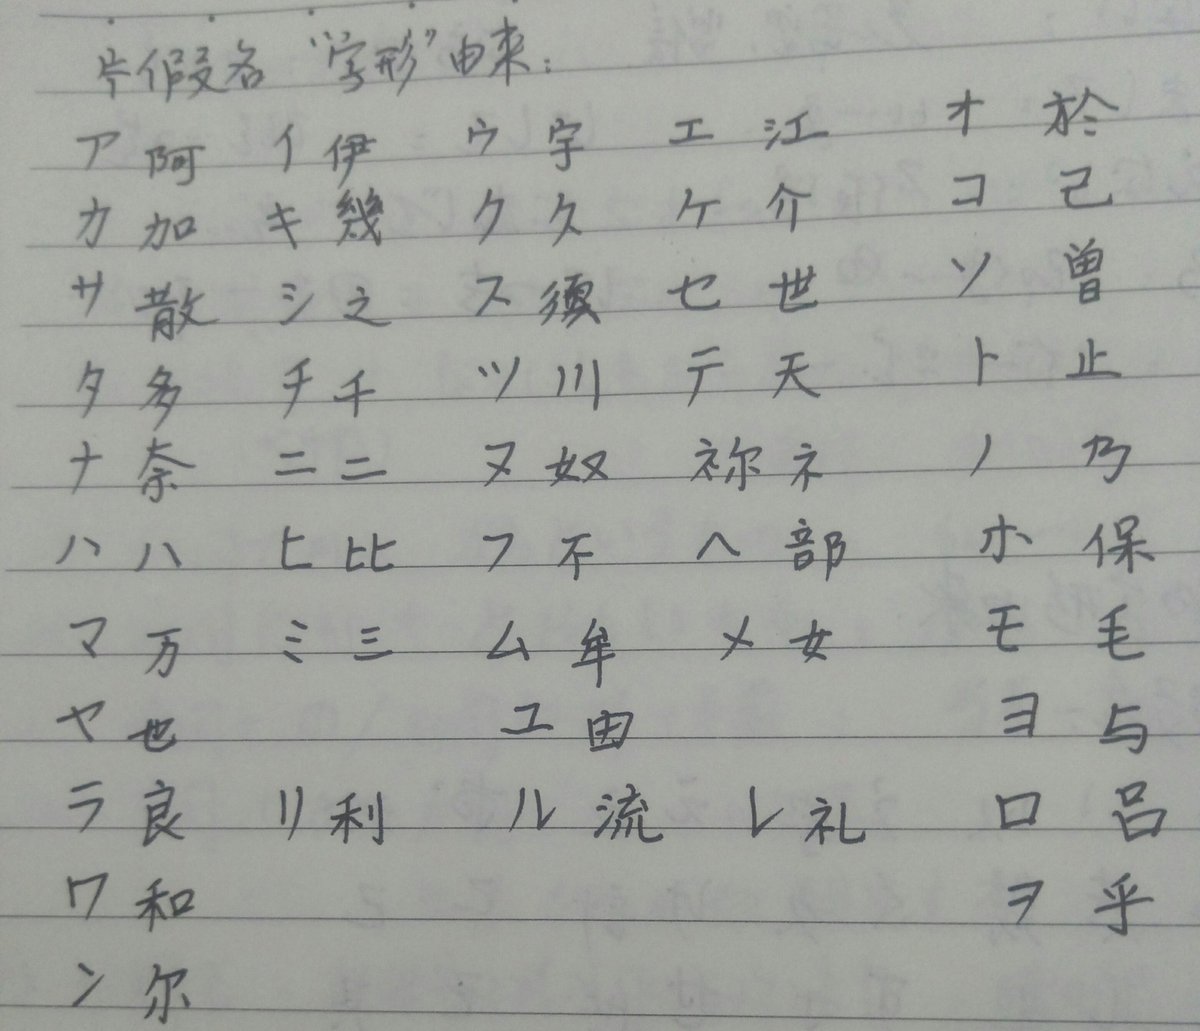 片假名 “字形” 由来:
ア 阿 イ 伊 ウ 宇 エ 江 オ 於
カ 加 キ 幾 ク 久 ケ 介 コ 己
サ 散 シ 之 ス 須 セ 世 ソ 曽
タ 多 チ 千 ツ 川 テ 天 ト 止
ナ 奈 ニ 二 ヌ 奴 祢 ネ ノ 乃
ハ 八 ヒ 比 フ 不 ヘ 部 ホ 保
マ 万 ミ 三 ム 牟 メ 女 モ 毛
ヤ 也 ユ 由 ヨ 与
ラ 良 リ 利 ル 流 レ 礼 ロ 呂
ワ 和 ヲ 乎
ン 尔